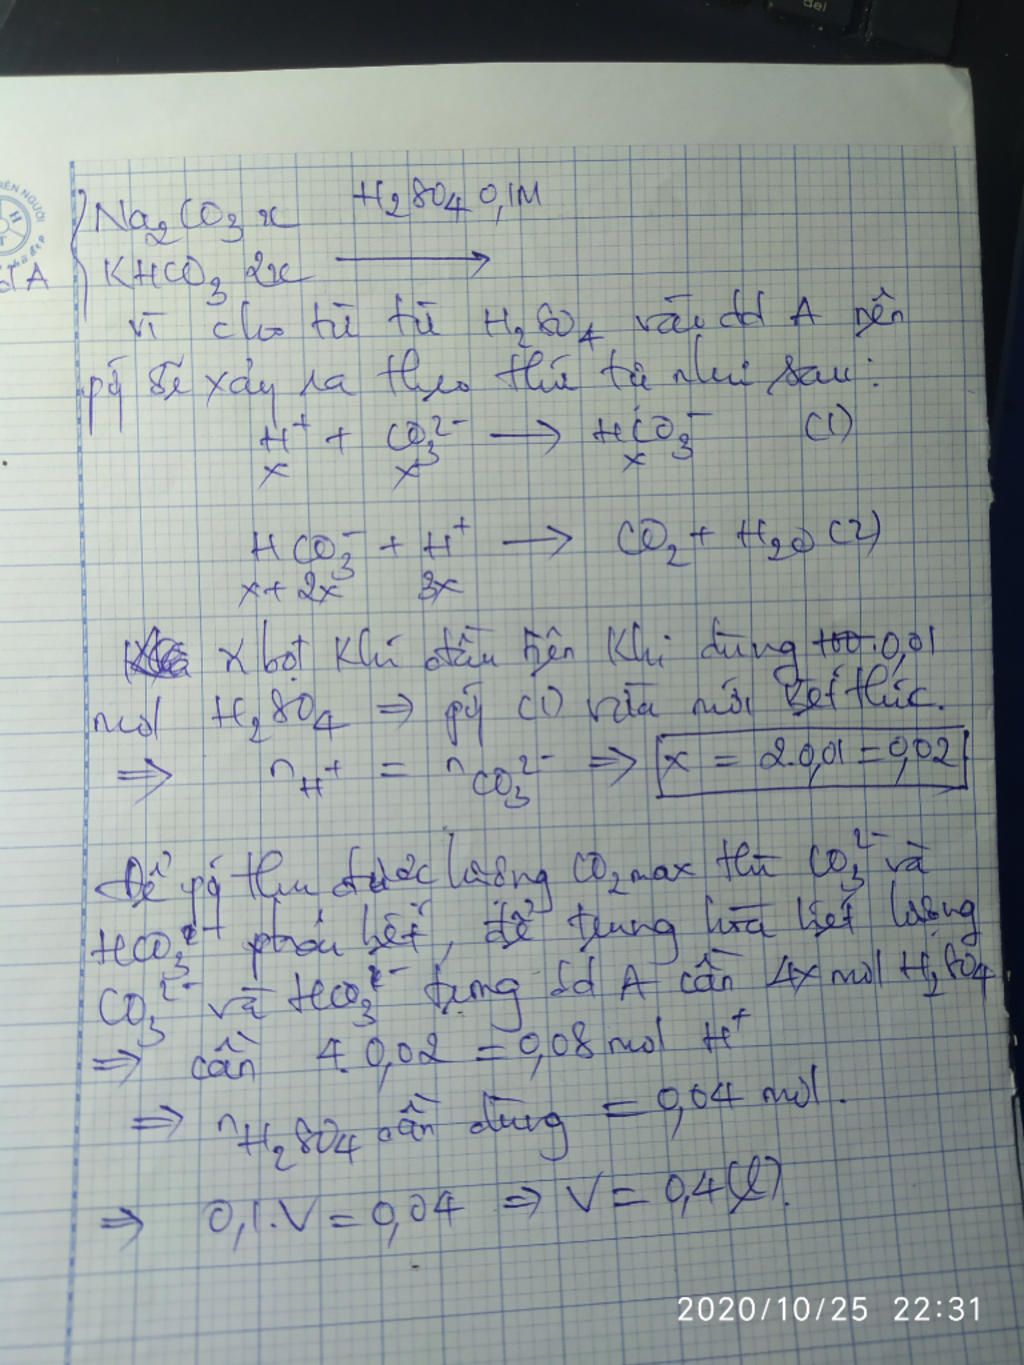 del
RÈN NGƯỜI
Na2CO3 x H2SO4 0,1M
dd A KHCO3 2x ⟶
vì cho từ từ H2SO4 vào dd A nên
pứ sẽ xảy ra theo thứ tự như sau:
H+ + CO3^2- ⟶ HCO3^- (1)
x x x
HCO3^- + H+ ⟶ CO2 + H2O (2)
x+2x 3x
x bọt khí đầu tiên khi dùng 0,01
mol H2SO4 ⇒ pứ (1) vừa mới kết thúc.
⇒ nH+ = nCO3^2- ⇒ x = 2.0,01 = 0,02
Để pứ thu được lượng CO2 max thì CO3^2- và
HCO3^- phải hết, để trung hòa hết lượng
CO3^2- và HCO3^- trong dd A cần 4x mol H2SO4
⇒ cần 4.0,02 = 0,08 mol H+
⇒ nH2SO4 cần dùng = 0,04 mol.
⇒ 0,1.V = 0,04 ⇒ V = 0,4(l).
2020/10/25 22:31